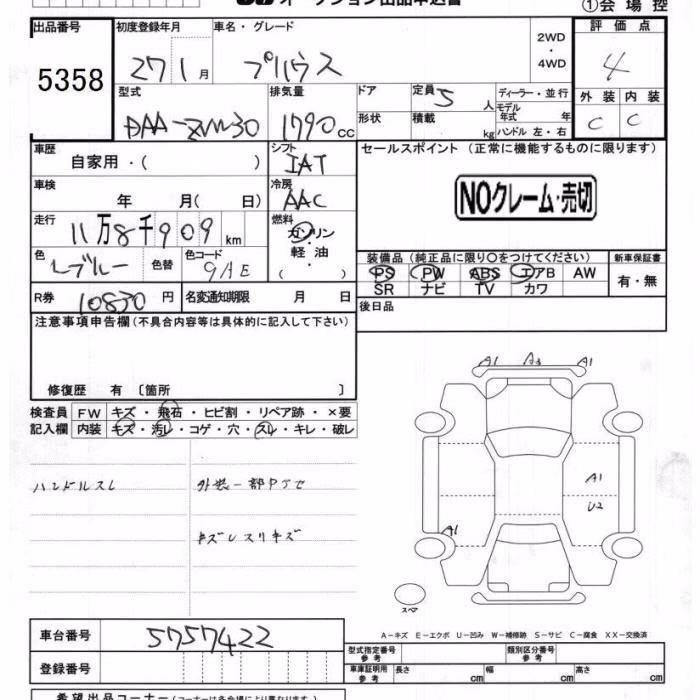 オークション出品申込書
①会場控
出品番号 5358
初度登録年月 27 1 月
車名・グレード プリウス
2WD ・ 4WD
評価点 4
外装 C 内装 C
型式 DAA-ZVW30
排気量 1790 CC
ドア 形状
定員 5 人
積載 kg
ディーラー・並行
モデル年式 年
ハンドル 左・右
車歴 自家用・( )
シフト IAT
セールスポイント (正常に機能するものに限ります)
NOクレーム・売切
車検 年 月( 日)
冷房 AAC
走行 11万8千909 km
燃料 ガソリン 軽油 ( )
色 レブルー 色替 色コード 9AE
装備品 (純正品に限り○をつけてください)
PS PW ABS エアB AW
SR ナビ TV カワ
新車保証書 有・無
R券 10830 円
名変通知期限 月 日
後日品
注意事項申告欄 (不具合内容等は具体的に記入して下さい)
修復歴 有 〔箇所 〕
検査員記入欄
FW キズ・飛石・ヒビ割・リペア跡・×要
内装 キズ・汚レ・コゲ・穴・スレ・キレ・破レ
ハンドルスレ
外装一部PJセ
キズレスリキズ
A1 A3 A1
A1
U2
A1
スペア
A-キズ E-エクボ U-凹み W-補修跡 S-サビ C-腐食 XX-交換済
車台番号 5757422
登録番号
型式指定番号 参考
類別区分番号 参考
車庫証明用 参考 長さ cm 幅 cm 高さ cm
希望出品コーナー (コーナーは各会場により異なります)